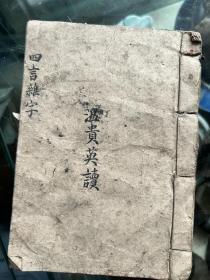 四言雜字
貴英讀